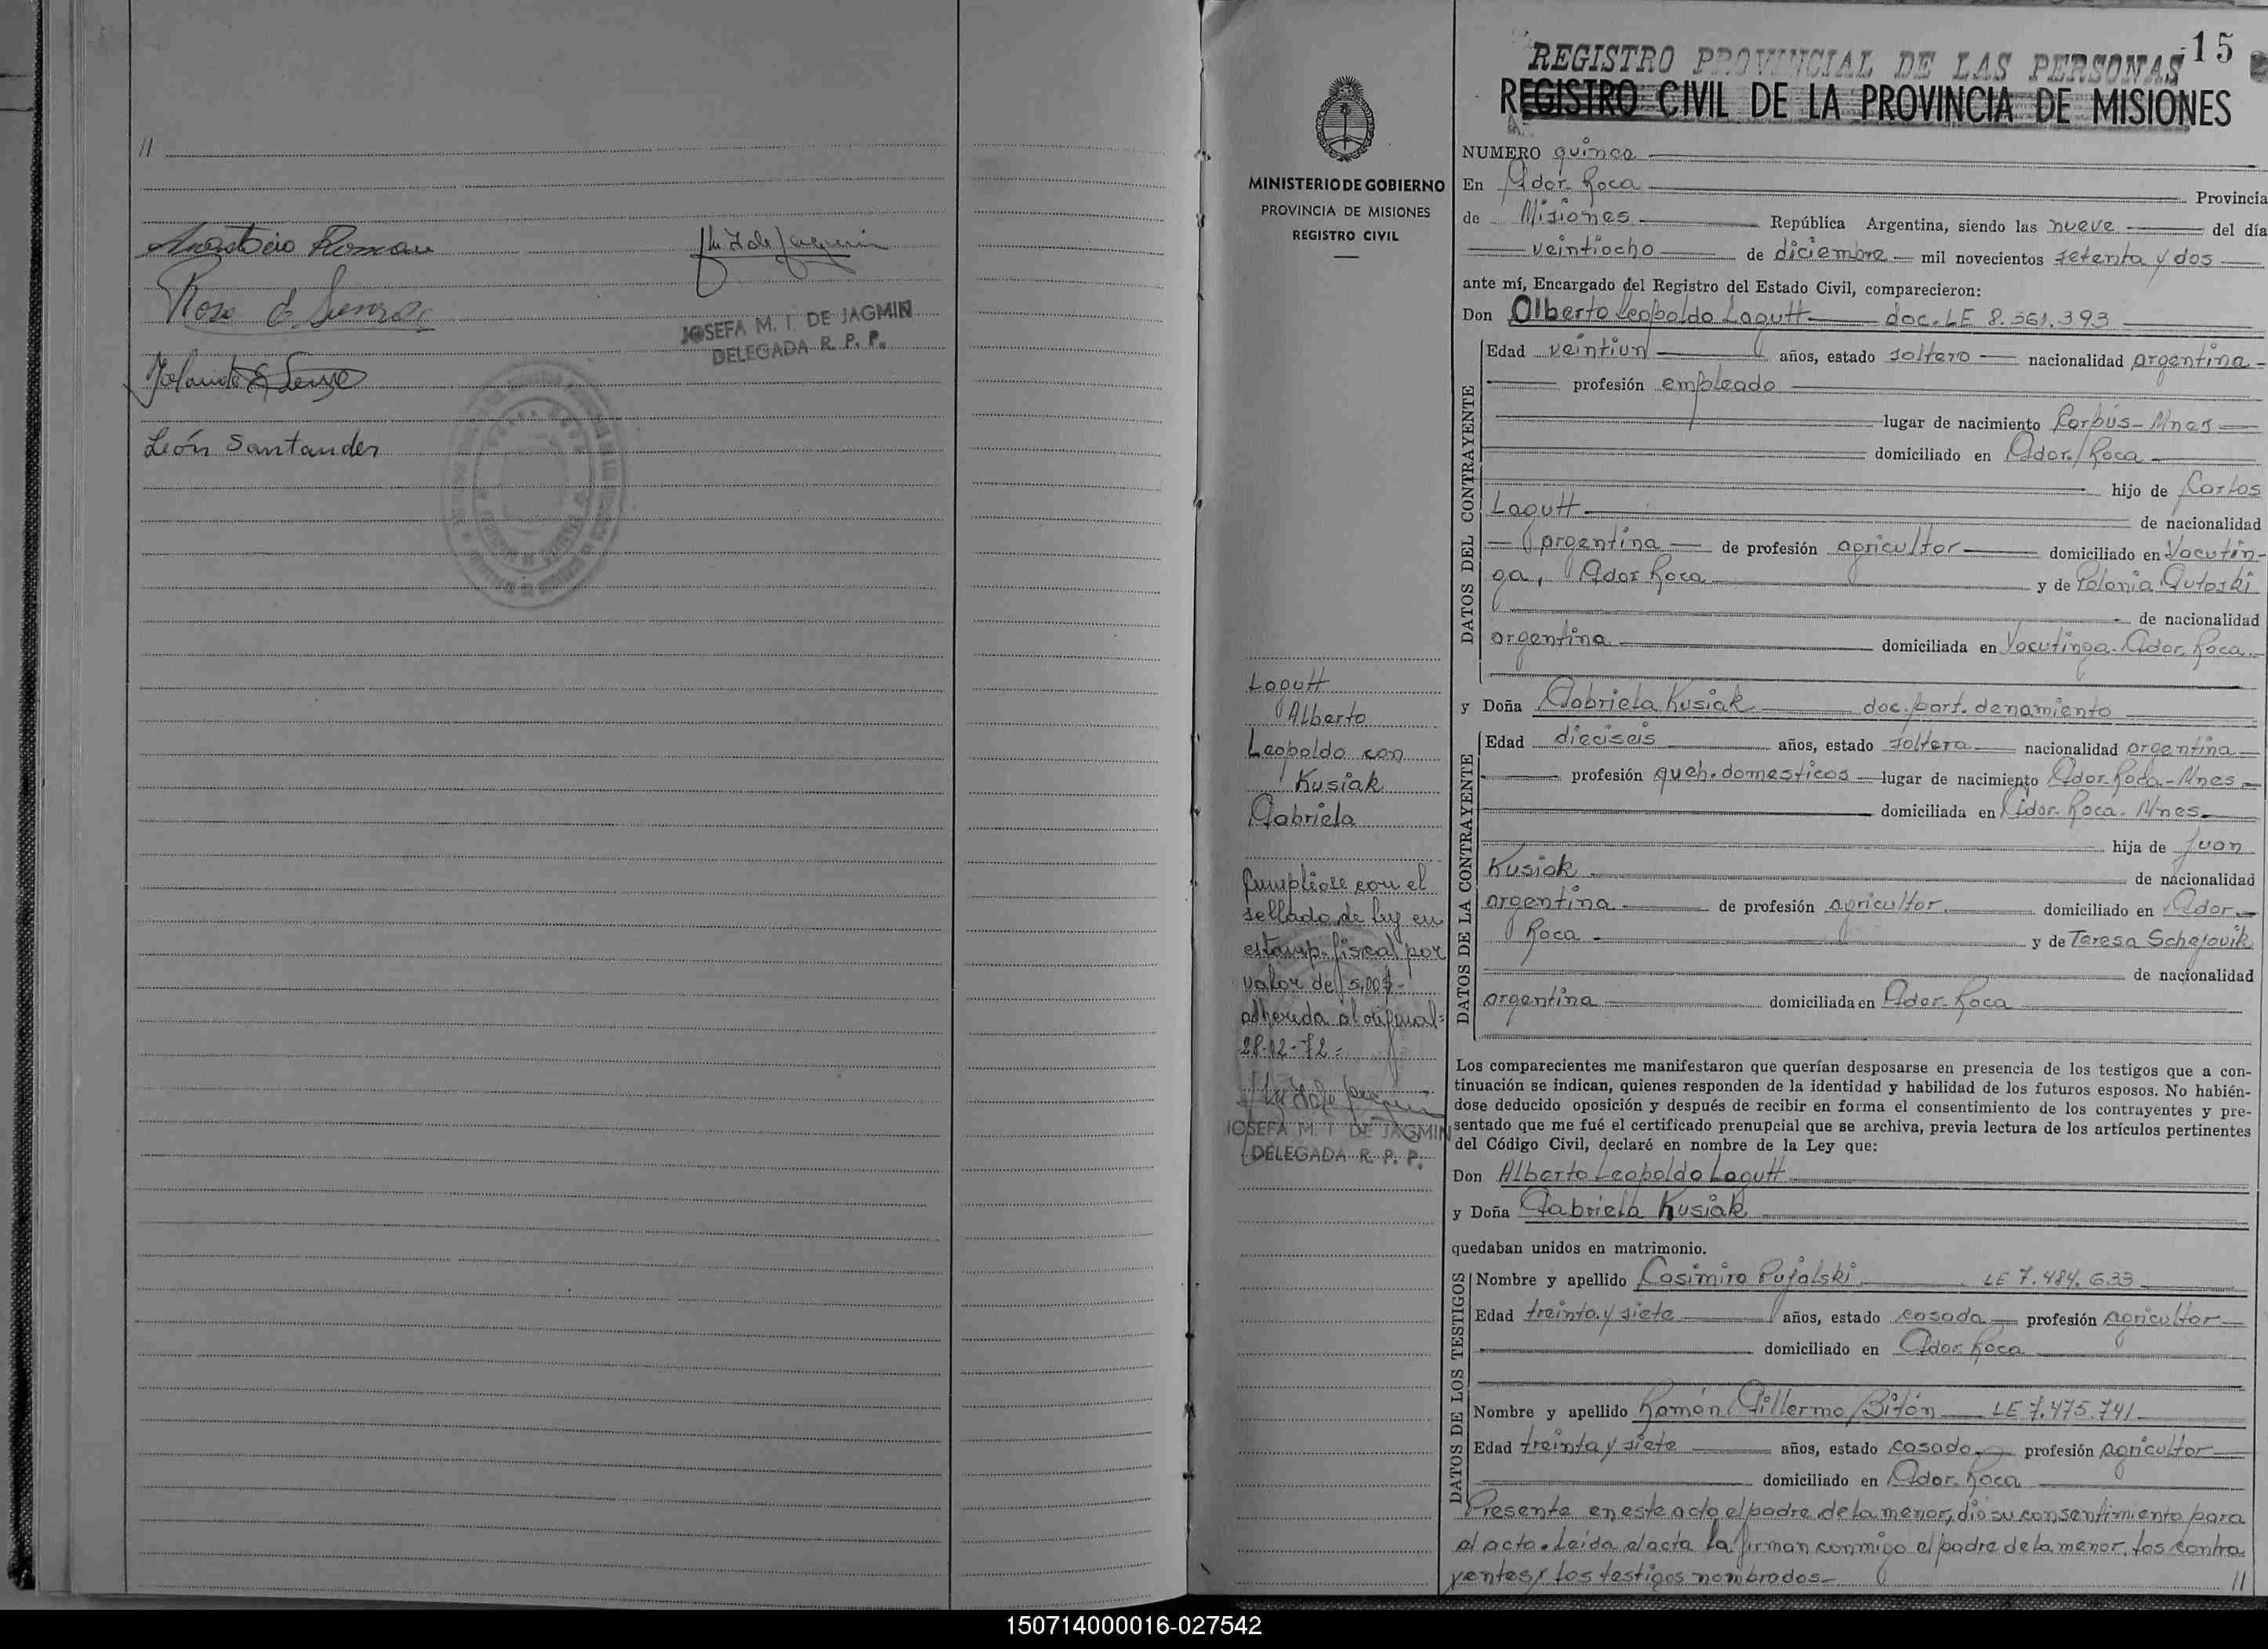 //
Anastacio Roman
JOSEFA M. T. DE JAGMIN
DELEGADA R. P. P.
León Santander
15
REGISTRO PROVINCIAL DE LAS PERSONAS
REGISTRO CIVIL DE LA PROVINCIA DE MISIONES
MINISTERIO DE GOBIERNO
PROVINCIA DE MISIONES
REGISTRO CIVIL
Lagutt
Alberto
Leopoldo con
Kusiak
Gabriela
Cumpliose con el
sellado de ley en
estamp. fiscal por
valor de 5,00$-
adherida al original-
28-12-72-
JOSEFA M. T. DE JAGMIN
DELEGADA R. P. P.
NUMERO quince
En Ador. Roca Provincia
de Misiones República Argentina, siendo las nueve del día
veintiocho de diciembre mil novecientos setenta y dos
ante mí, Encargado del Registro del Estado Civil, comparecieron:
Don Alberto Leopoldo Lagutt doc. LE 8.561.393
DATOS DEL CONTRAYENTE
Edad veintiun años, estado soltero nacionalidad argentina
profesión empleado
lugar de nacimiento Corpus-Mnes
domiciliado en Ador. Roca
hijo de Carlos
Lagutt de nacionalidad
argentina de profesión agricultor domiciliado en Yacutin-
ga, Ador Roca y de Polonia Autoski
de nacionalidad
argentina domiciliada en Yacutinga. Ador. Roca
y Doña Gabriela Kusiak doc. part. denamiento
DATOS DE LA CONTRAYENTE
Edad dieciseis años, estado soltera nacionalidad argentina
profesión queh. domesticos lugar de nacimiento Ador. Roca-Mnes
domiciliada en Ador. Roca. Mnes.
hija de Juan
Kusiak de nacionalidad
argentina de profesión agricultor domiciliado en Ador.
Roca y de Teresa Schejovik
de nacionalidad
argentina domiciliada en Ador. Roca
Los comparecientes me manifestaron que querían desposarse en presencia de los testigos que a con-
tinuación se indican, quienes responden de la identidad y habilidad de los futuros esposos. No habién-
dose deducido oposición y después de recibir en forma el consentimiento de los contrayentes y pre-
sentado que me fué el certificado prenupcial que se archiva, previa lectura de los artículos pertinentes
del Código Civil, declaré en nombre de la Ley que:
Don Alberto Leopoldo Lagutt
y Doña Gabriela Kusiak
quedaban unidos en matrimonio.
DATOS DE LOS TESTIGOS
Nombre y apellido Casimiro Pujalski LE 7.484.633
Edad treinta y siete años, estado casado profesión agricultor
domiciliado en Ador. Roca
Nombre y apellido Ramón Gillermo Bitón LE 7.475.741
Edad treinta y siete años, estado casado profesión agricultor
domiciliado en Ador. Roca
Presente en este acto el padre de la menor, dio su consentimiento para
el acto. Leída el acta la firman conmigo el padre de la menor, los contra
yentes y los testigos nombrados-
//
150714000016-027542